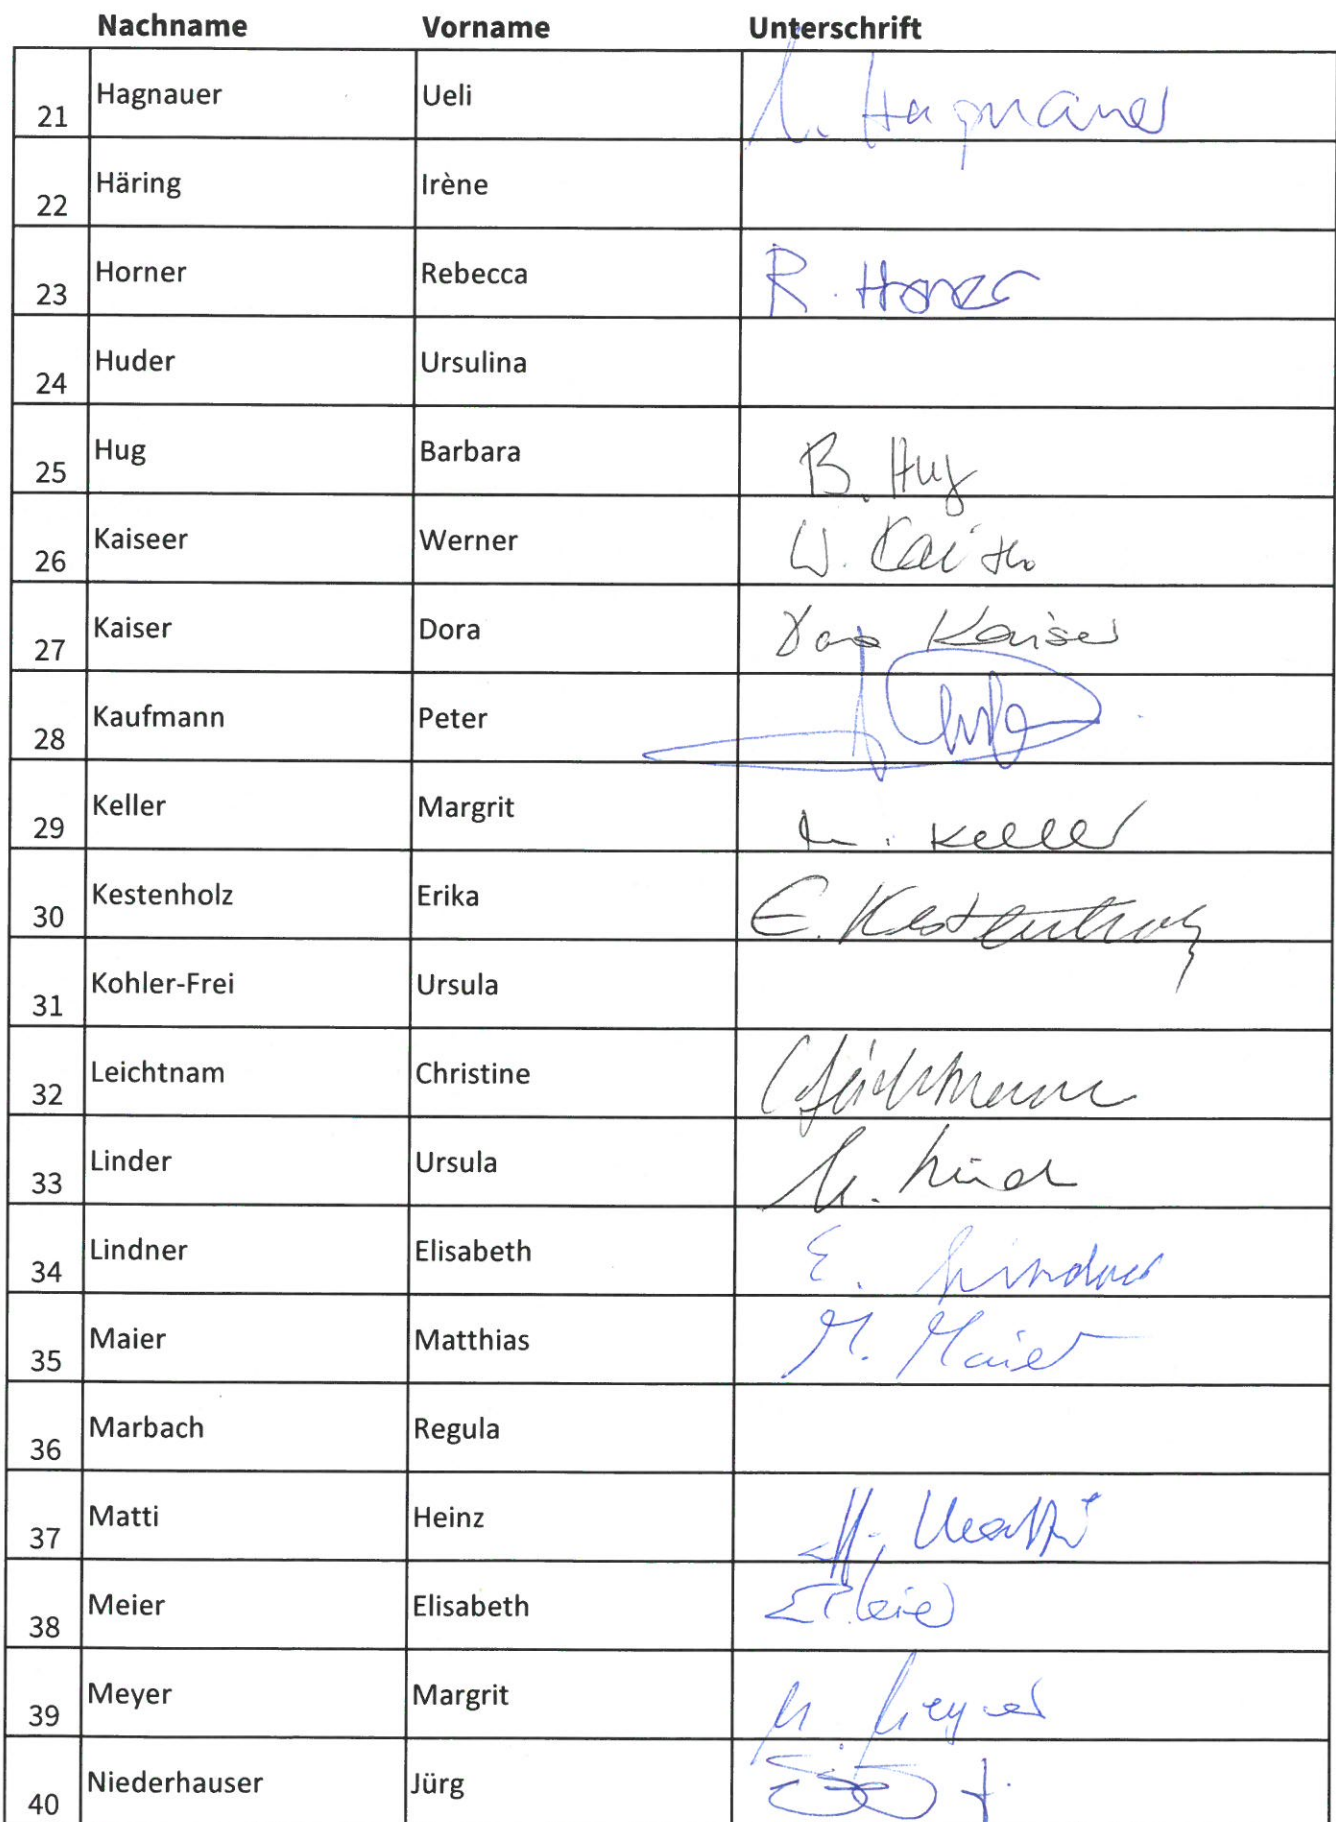 Nachname Vorname Unterschrift
21 Hagnauer Ueli U. Hagnauer
22 Häring Irène
23 Horner Rebecca R. Horner
24 Huder Ursulina
25 Hug Barbara B. Hug
26 Kaiseer Werner W. Kaiser
27 Kaiser Dora Dora Kaiser
28 Kaufmann Peter
29 Keller Margrit M. Keller
30 Kestenholz Erika E. Kestenholz
31 Kohler-Frei Ursula
32 Leichtnam Christine
33 Linder Ursula U.
34 Lindner Elisabeth E. Lindner
35 Maier Matthias M. Maier
36 Marbach Regula
37 Matti Heinz H. Matti
38 Meier Elisabeth E. Meier
39 Meyer Margrit M. Meyer
40 Niederhauser Jürg